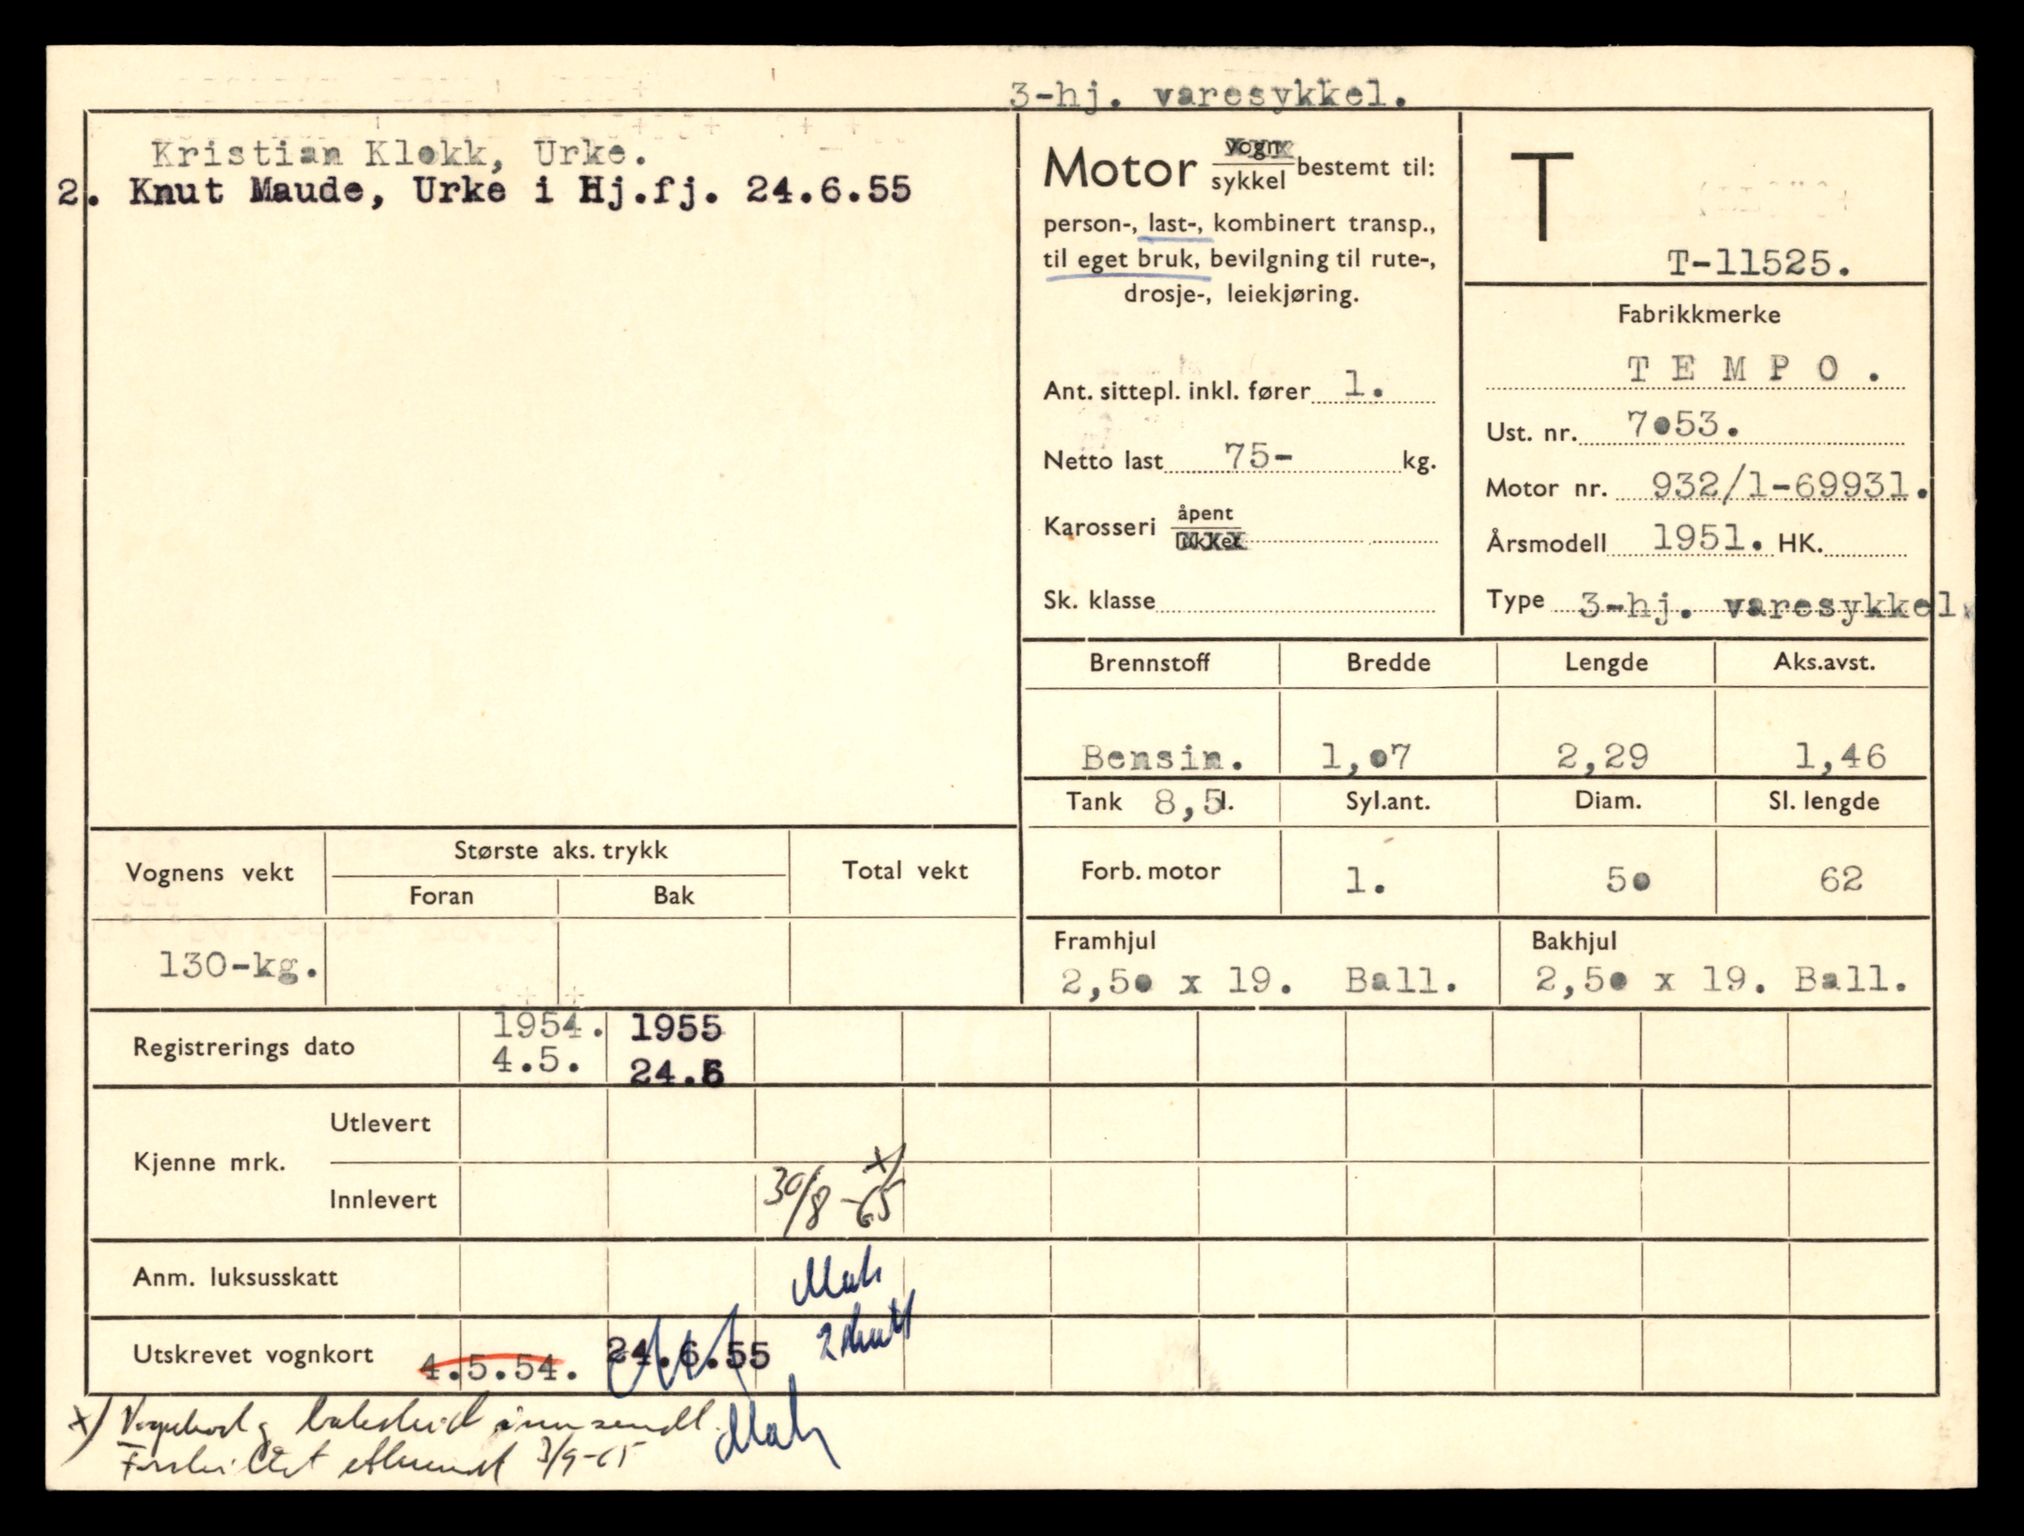 3-hj. varesykkel.
Kristian Klokk, Urke.
2. Knut Maude, Urke i Hj.fj. 24.6.55
Motor vogn sykkel bestemt til:
person-, last-, kombinert transp.,
til eget bruk, bevilgning til rute-,
drosje-, leiekjøring.
Ant. sittepl. inkl. fører 1.
Netto last 75- kg.
Karosseri åpent lukket
Sk. klasse
T
T-11525.
Fabrikkmerke
TEMPO.
Ust. nr. 7053.
Motor nr. 932/1-69931.
Årsmodell 1951. HK.
Type 3-hj. varesykkel.
Brennstoff Bredde Lengde Aks.avst.
Bensin. 1,07 2,29 1,46
Tank 8,5 l. Syl.ant. Diam. Sl. lengde
Forb. motor 1. 50 62
Framhjul Bakhjul
2,50 x 19. Ball. 2,50 x 19. Ball.
Vognens vekt Største aks. trykk Total vekt
Foran Bak
130-kg.
Registrerings dato 1954. 1955
4.5. 24.6
Kjenne mrk. Utlevert
Innlevert 30/8 -65 x)
Anm. luksusskatt
Utskrevet vognkort 4.5.54. 24.6.55
x) Vognkort og innsendt.
ettersendt 3/9-65